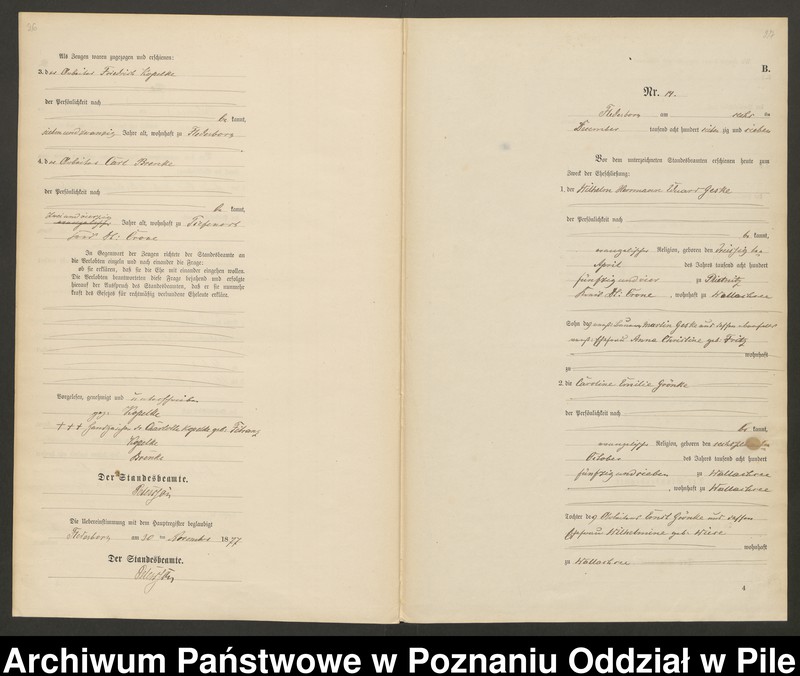 Als Zeugen waren zugezogen und erschienen:
3. der Arbeiter Friedrich Kopelke
der Persönlichkeit nach
be kannt,
sieben und zwanzig Jahre alt, wohnhaft zu Flederborn
4. der Arbeiter Carl
der Persönlichkeit nach
be kannt,
Jahre alt, wohnhaft zu
Crone
In Gegenwart der Zeugen richtete der Standesbeamte an
die Verlobten einzeln und nach einander die Frage:
ob sie erklären, daß sie die Ehe mit einander eingehen wollen.
Die Verlobten beantworteten diese Frage bejahend und erfolgte
hierauf der Ausspruch des Standesbeamten, daß er sie nunmehr
kraft des Gesetzes für rechtmäßig verbundene Eheleute erkläre.
Vorgelesen, genehmigt und unterschrieben
gez: Kopelke
+++ Handzeichen der Kopelke geb.
Kopelke
Der Standesbeamte.
Die Uebereinstimmung mit dem Hauptregister beglaubigt
Flederborn am 30 ten November 1877
Der Standesbeamte.
B.
Nr. 14.
Flederborn am ten
Dezember tausend acht hundert sieben zig und sieben
Vor dem unterzeichneten Standesbeamten erschienen heute zum
Zweck der Eheschließung:
1. der Wilhelm Herrmann Eduard Geske
der Persönlichkeit nach
be kannt,
evangelischer Religion, geboren den
April des Jahres tausend acht hundert
fünfzig und vier zu
Crone, wohnhaft zu Wallachsee
Sohn des Martin Geske und dessen
Ehefrau Anna Christine geb. Fritz
wohnhaft
zu
2. die Caroline Emilie Grönke
der Persönlichkeit nach
be kannt,
evangelischer Religion, geboren den
October des Jahres tausend acht hundert
fünfzig und sieben zu Wallachsee
, wohnhaft zu Wallachsee
Tochter des Arbeiters Ernst Grönke und dessen
Ehefrau Wilhelmine geb. Wiese
wohnhaft
zu Wallachsee
4
Archiwum Państwowe w Poznaniu Oddział w Pile